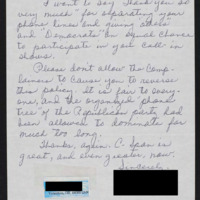 I want to say Thank you so
very much for separating your
phone lines and giving atleast
and "Democrats" an equal chance
to participate in your call in
shows.
Please don't allow the Comp-
lainers to cause you to reverse
this policy. It is fair to every-
one, and the organized phone
tree of the Republican party had
been allowed to dominate for
much too long.
Thanks again. C-Span is
great, and even greater, now.
Sincerely,